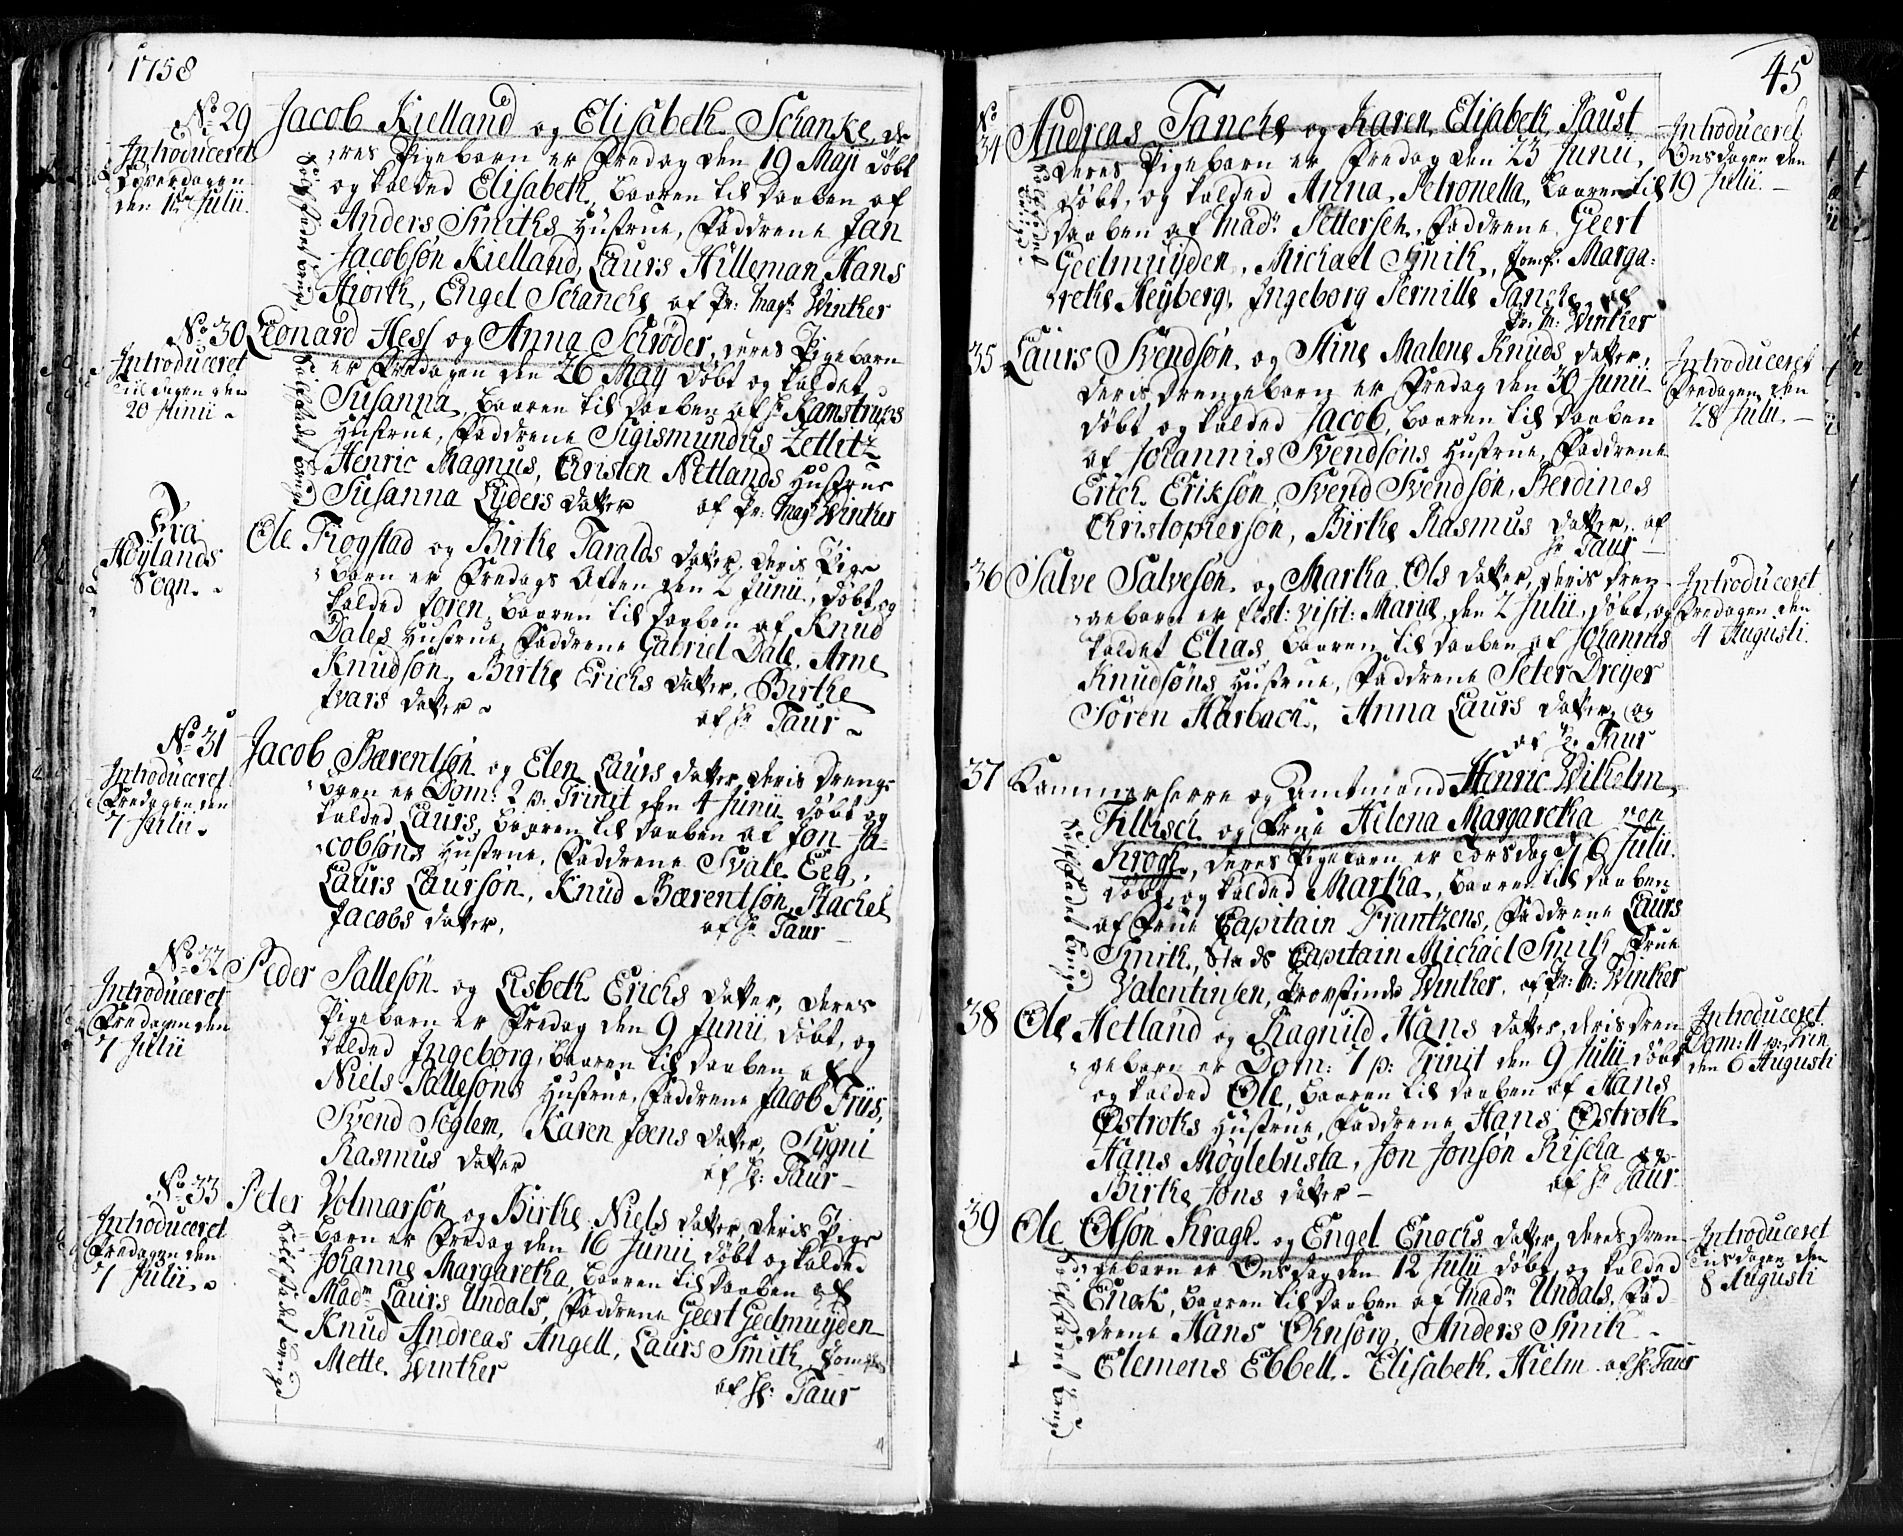 1758
No 29
Introduceret
Löverdagen
den 1ste Julii.
Jacob Kielland og Elisabeth Schanke, de
res Pigebarn er Fredag den 19 Maji döbt
og kalded Elisabeth, baaren til daaben af
Anders Smiths Hustrue, Faddrene Jan
Jacobsön Kielland, Laurs Hilleman, Hans
Hiorth, Engel Schanche af Pr: Mag: Winther
Sölf fadet brugt
No 30
Introduceret
Tiisdagen den
20 Junii
Leonard Hess og Anna Schröder, deres Pigebarn
er Fredagen den 26 May döbt og kaldet
Susanna, baaren til daaben af Hr Kamstrups
Hustrue, Faddrene Sigismundus Zetlitz
Henric Magnus, Christen Netlands Hustrue
Susanna Lyders datter af Pr: Mag: Winther
Sölf fadet brugt
Fra
Höylands
Sogn.
Ole Trogstad og Birthe Taralds datter, deris Pige
barn er Fredags Aften den 2 Junii, döbt, og
kalded Joren, baaren til daaben af Knud
Dales Hustrue, Faddrene Gabriel Dale, Arne
Knudsön, Birthe Erichs datter, Birthe
Ivars datter
af Hr Taur
No 31
Introduceret
Fredagen den
7 Julii
Jacob Bærentsön og Elen Laurs datter, deris Drenge
barn er Dom: 2 p: Trinit den 4 Junii döbt og
kalded Laurs, baaren til daaben af Jon Ja-
cobsöns Hustrue, Faddrene Svale Eeg,
Laurs Laursön, Knud Bærentsön, Rachel
Jacobs datter,
af Hr Taur
No 32
Introduceret
Fredagen den
7 Julii
Peder Sallesön og Lisbeth Erichs datter, deres
Pigebarn er Fredag den 9 Junii döbt, og
kalded Ingeborg, baaren til daaben af
Niels Sallesöns Hustrue, Faddrene Jacob Friis,
Svend Seglem, Karen Joens datter, Sygni
Rasmus datter
af Hr: Taur
No 33
Introduceret
Fredagen den
7 Julii
Peter Volmarsön og Birthe Niels datter, deris Pige
barn er Fredag den 16 Junii döbt og kalded
Johanne Margaretha, baaren til daaben af
Madm Laurs Undals, Faddrene Geert Geelmuyden
Knud Andreas Angell, Laurs Smith, Jomfr
Mette Winther
af Hr: Taur
Sölf fadet brugt
45
No
34
Andreas Tanche og Karen Elisabeth Faust
deres Pigebarn er Fredag den 23 Junii,
döbt, og kalded Anna Petronella, baaren til
daaben af Madm Pettersen, Faddrene Geert
Geelmuyden, Michael Smith, Jomfr. Marga-
rethe Heyberg, Ingeborg Pernille Tanche, af
Pr: M: Winther
Introduceret
Onsdagen den
19 Julii.
35
Laurs Svendsön og Stine Malene Knuds datter,
deris Drengebarn er Fredag den 30 Junii
döbt og kalded Jacob, baaren til daaben
af Johannis Svendsöns Hustrue, Faddrene
Erich Eriksön, Svend Svendsön, Berdines
Christophersön, Birthe Rasmus datter, af
Hr Taur
Introduceret
Fredagen den
28 Julii.
36
Salve Salvesön og Martha Ols datter, deris Dren
gebarn er fest: visit: Mariæ, den 2 Julii, döbt, og
kaldet Elias baaren til daaben af Johannis
Knudsöns Hustrue, Faddrene Peter Dreyer
Sören Harbach, Anna Laurs datter, og
af Hr. Taur
Introduceret
Fredagen den
4 Augusti.
37
Kammerherre og Amtmand Henric Wilhelm
Tillisch og Frue Helena Margaretha von
Krogh, deres Pigebarn er Torsdag d 6 Julii.
döbt, og kalded Martha, baaren til daaben
af Frue Capitain Frantzens, Faddrene Laurs
Smith, Stads Capitain Michael Smith, Frue
Valentinsen, Provstinde Winther. af Pr: M: Winther
Sölf fadet brugt
38
Ole Hetland og Ragnild Hans datter, deris Dren
gebarn er Dom: 7 p: Trinit den 9 Julii döbt
og kalded Ole, baaren til daaben af Hans
Östroks Hustrue, Faddrene Hans Östrok
Hans Möglebusta, Jon Jonsön Rischa og
Birthe Jons datter
af Hr Taur
Introduceret
Dom: 11 p: Trin
den 6 Augusti
39
Ole Olsön Kragh og Engel Enochs datter, deres Dren
gebarn er Onsdag den 12 Julii döbt, og kalded
Enok, baaren til daaben af Madm Undals, Fad
drene Hans Öhnsorg, Anders Smith
Clemens Ebbell. Elisabeth Hielm af Hr: Taur
Introduceret
Tiisdagen den
8 Augusti